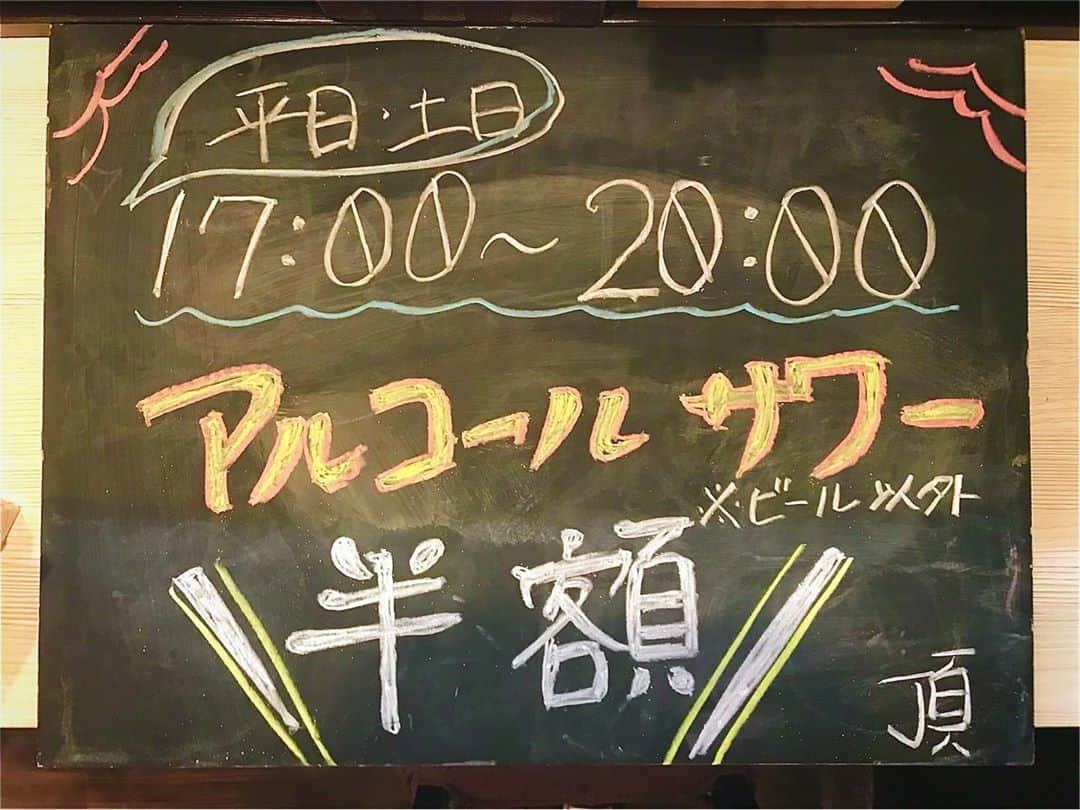 平日・土日
17:00～20:00
アルコールサワー
※ビール以外
半額
頂